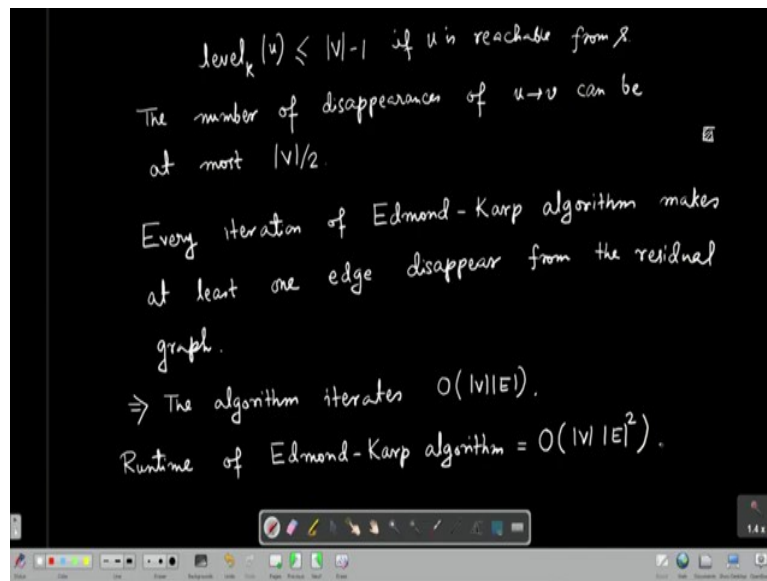 level_k(u) ≤ |V|-1 if u is reachable from s.
The number of disappearances of u→v can be
at most |V|/2.
Every iteration of Edmond-Karp algorithm makes
at least one edge disappear from the residual
graph.
⇒ The algorithm iterates O(|V||E|).
Runtime of Edmond-Karp algorithm = O(|V| |E|²).
1.4 x